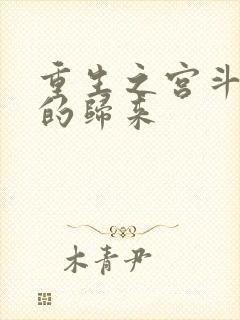 重生之宫斗
的归来
木青尹